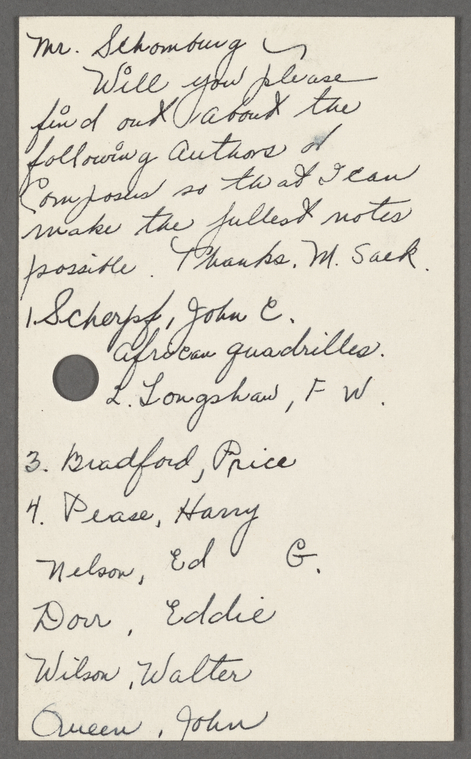 Mr. Schomburg
Will you please
find out about the
following Authors or
Composers so that I can
make the fullest notes
possible. Thanks. M. Sack.
1. Scherpf, John C.
African quadrilles.
2. Longshaw, F W.
3. Bradford, Price
4. Pease, Harry
Nelson, Ed G.
Dorr, Eddie
Wilson, Walter
Queen, John